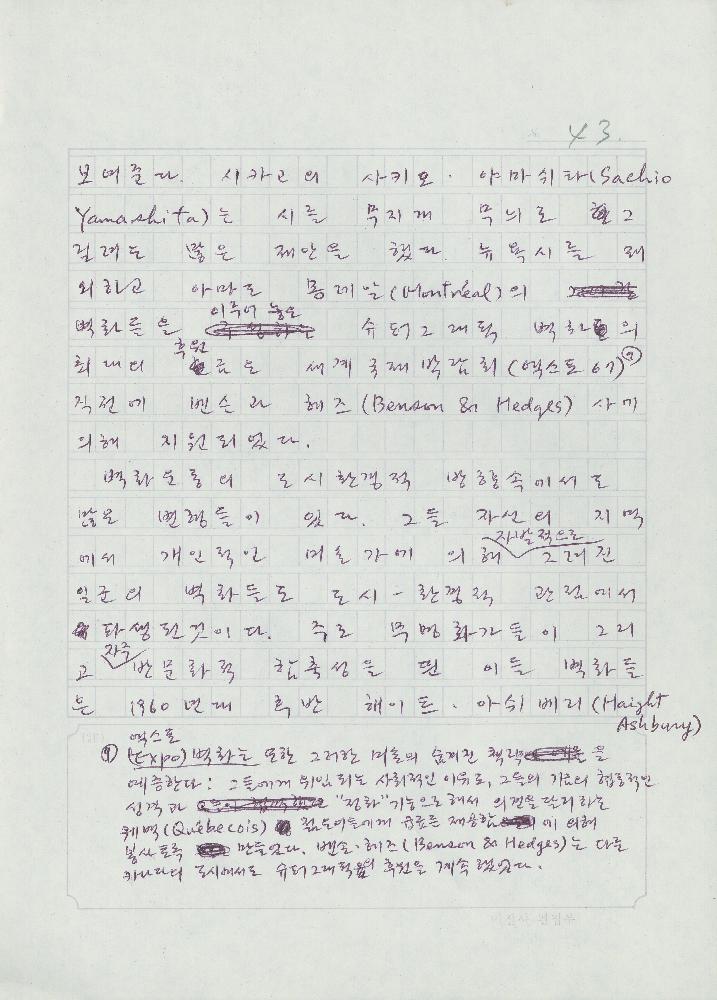 43.
보여준다. 시카고의 사키오·야마쉬타(Sachio
Yamashita)는 시를 무지개 무늬로 그
릴려는 많은 제안을 했다. 뉴욕시를 제
외하고 아마도 몽레알(Montréal)의
벽화들을 이루어 놓은 슈퍼그래픽 벽화의
최대의 후원금은 세계국제박람회(엑스포 67)⑨
직전에 벤슨과 헤즈(Benson & Hedges) 사에
의해 지원되었다.
벽화운동의 도시환경적 방향속에서도
많은 변형들이 있다. 그들 자신의 지역
에서 개인적인 미술가에 의해 자발적으로 그려진
일군의 벽화들도 도시-환경적 관점에서
파생된것이다. 주로 무명화가들이 그리
고 자주 반문화적 함축성을 띤 이들 벽화들
은 1960년대 후반 헤이트·아쉬베리(Haight
Ashbury)
⑨ 엑스포(Expo) 벽화는 또한 그러한 미술의 숨겨진 책략을
예증한다: 그들에게 위임되는 사회적인 이유로, 그들의 기교의 협동적인
성격과 "정화"기능으로해서 의견을 달리하는
퀘벡(Québecois) 젊은이들에게 유료를 제공함에 의해
봉사토록 만들었다. 벤손·헤즈(Benson & Hedges)는 다른
카나다의 도시에서도 슈퍼그래픽의 후원을 계속했었다.
미진사 편집부